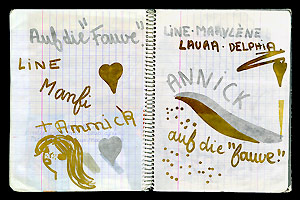 Auf die "Fauve"
LiNE
Manfi
+ Annick
LiNE · MARYLÈNE
LAURA · DELPHIA
ANNICK
auf die "fauve!"